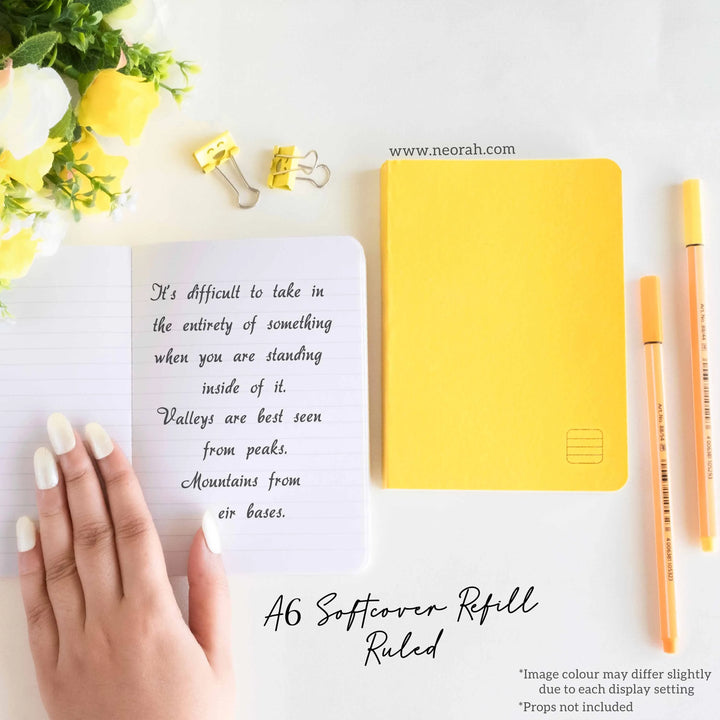 www.neorah.com
It's difficult to take in
the entirety of something
when you are standing
inside of it.
Valleys are best seen
from peaks.
Mountains from
eir bases.
Art.No. 88/44
Art.No. 88/54
A6 Softcover Refill
Ruled
*Image colour may differ slightly
due to each display setting
*Props not included